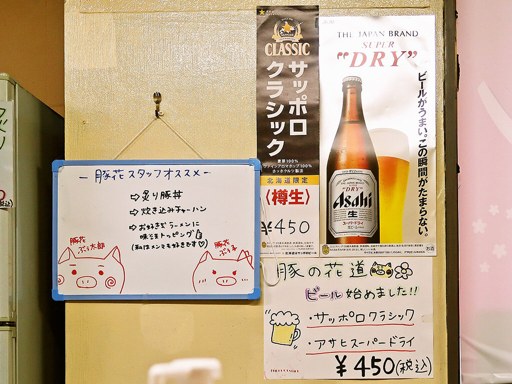 ー 豚花スタッフオススメ ー
⇨炙り豚丼
⇨炊き込みチャーハン
⇨お好きなラーメンに
味玉トッピング
(私はメンマも好きです♡)
豚花
ぶぅ太郎
豚花
ぶぅ子
CLASSIC
サッポロ
クラシック
麦芽100%
北海道限定
〈樽生〉
¥450
THE JAPAN BRAND
SUPER
"DRY"
ビールがうまい。この瞬間がたまらない。
"DRY"
Asahi
生
豚の花道
ビール始めました!!
・サッポロクラシック
・アサヒスーパードライ
¥450(税込)